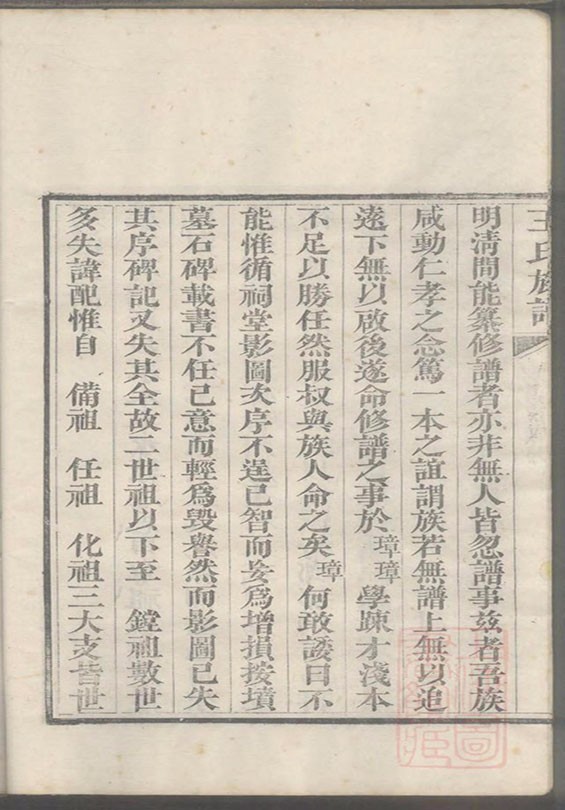 王氏族譜
明淸間能纂修譜者亦非無人皆忽譜事玆者吾族
咸動仁孝之念篤一本之誼謂族若無譜上無以追
遠下無以啟後遂命修譜之事於 璋璋 學踈才淺本
不足以勝任然服叔與族人命之矣 璋 何敢諉曰不
能惟循祠堂影圖次序不逞己智而妄爲增損按墳
墓石碑載書不任己意而輕爲毀譽然而影圖已失
其序碑記又失其全故二世祖以下至 鏜祖數世
多失諱配惟自 備祖 任祖 化祖三大支皆世